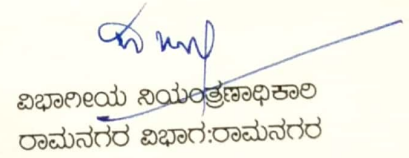 ವಿಭಾಗೀಯ ನಿಯಂತ್ರಣಾಧಿಕಾರಿ
ರಾಮನಗರ ವಿಭಾಗ:ರಾಮನಗರ